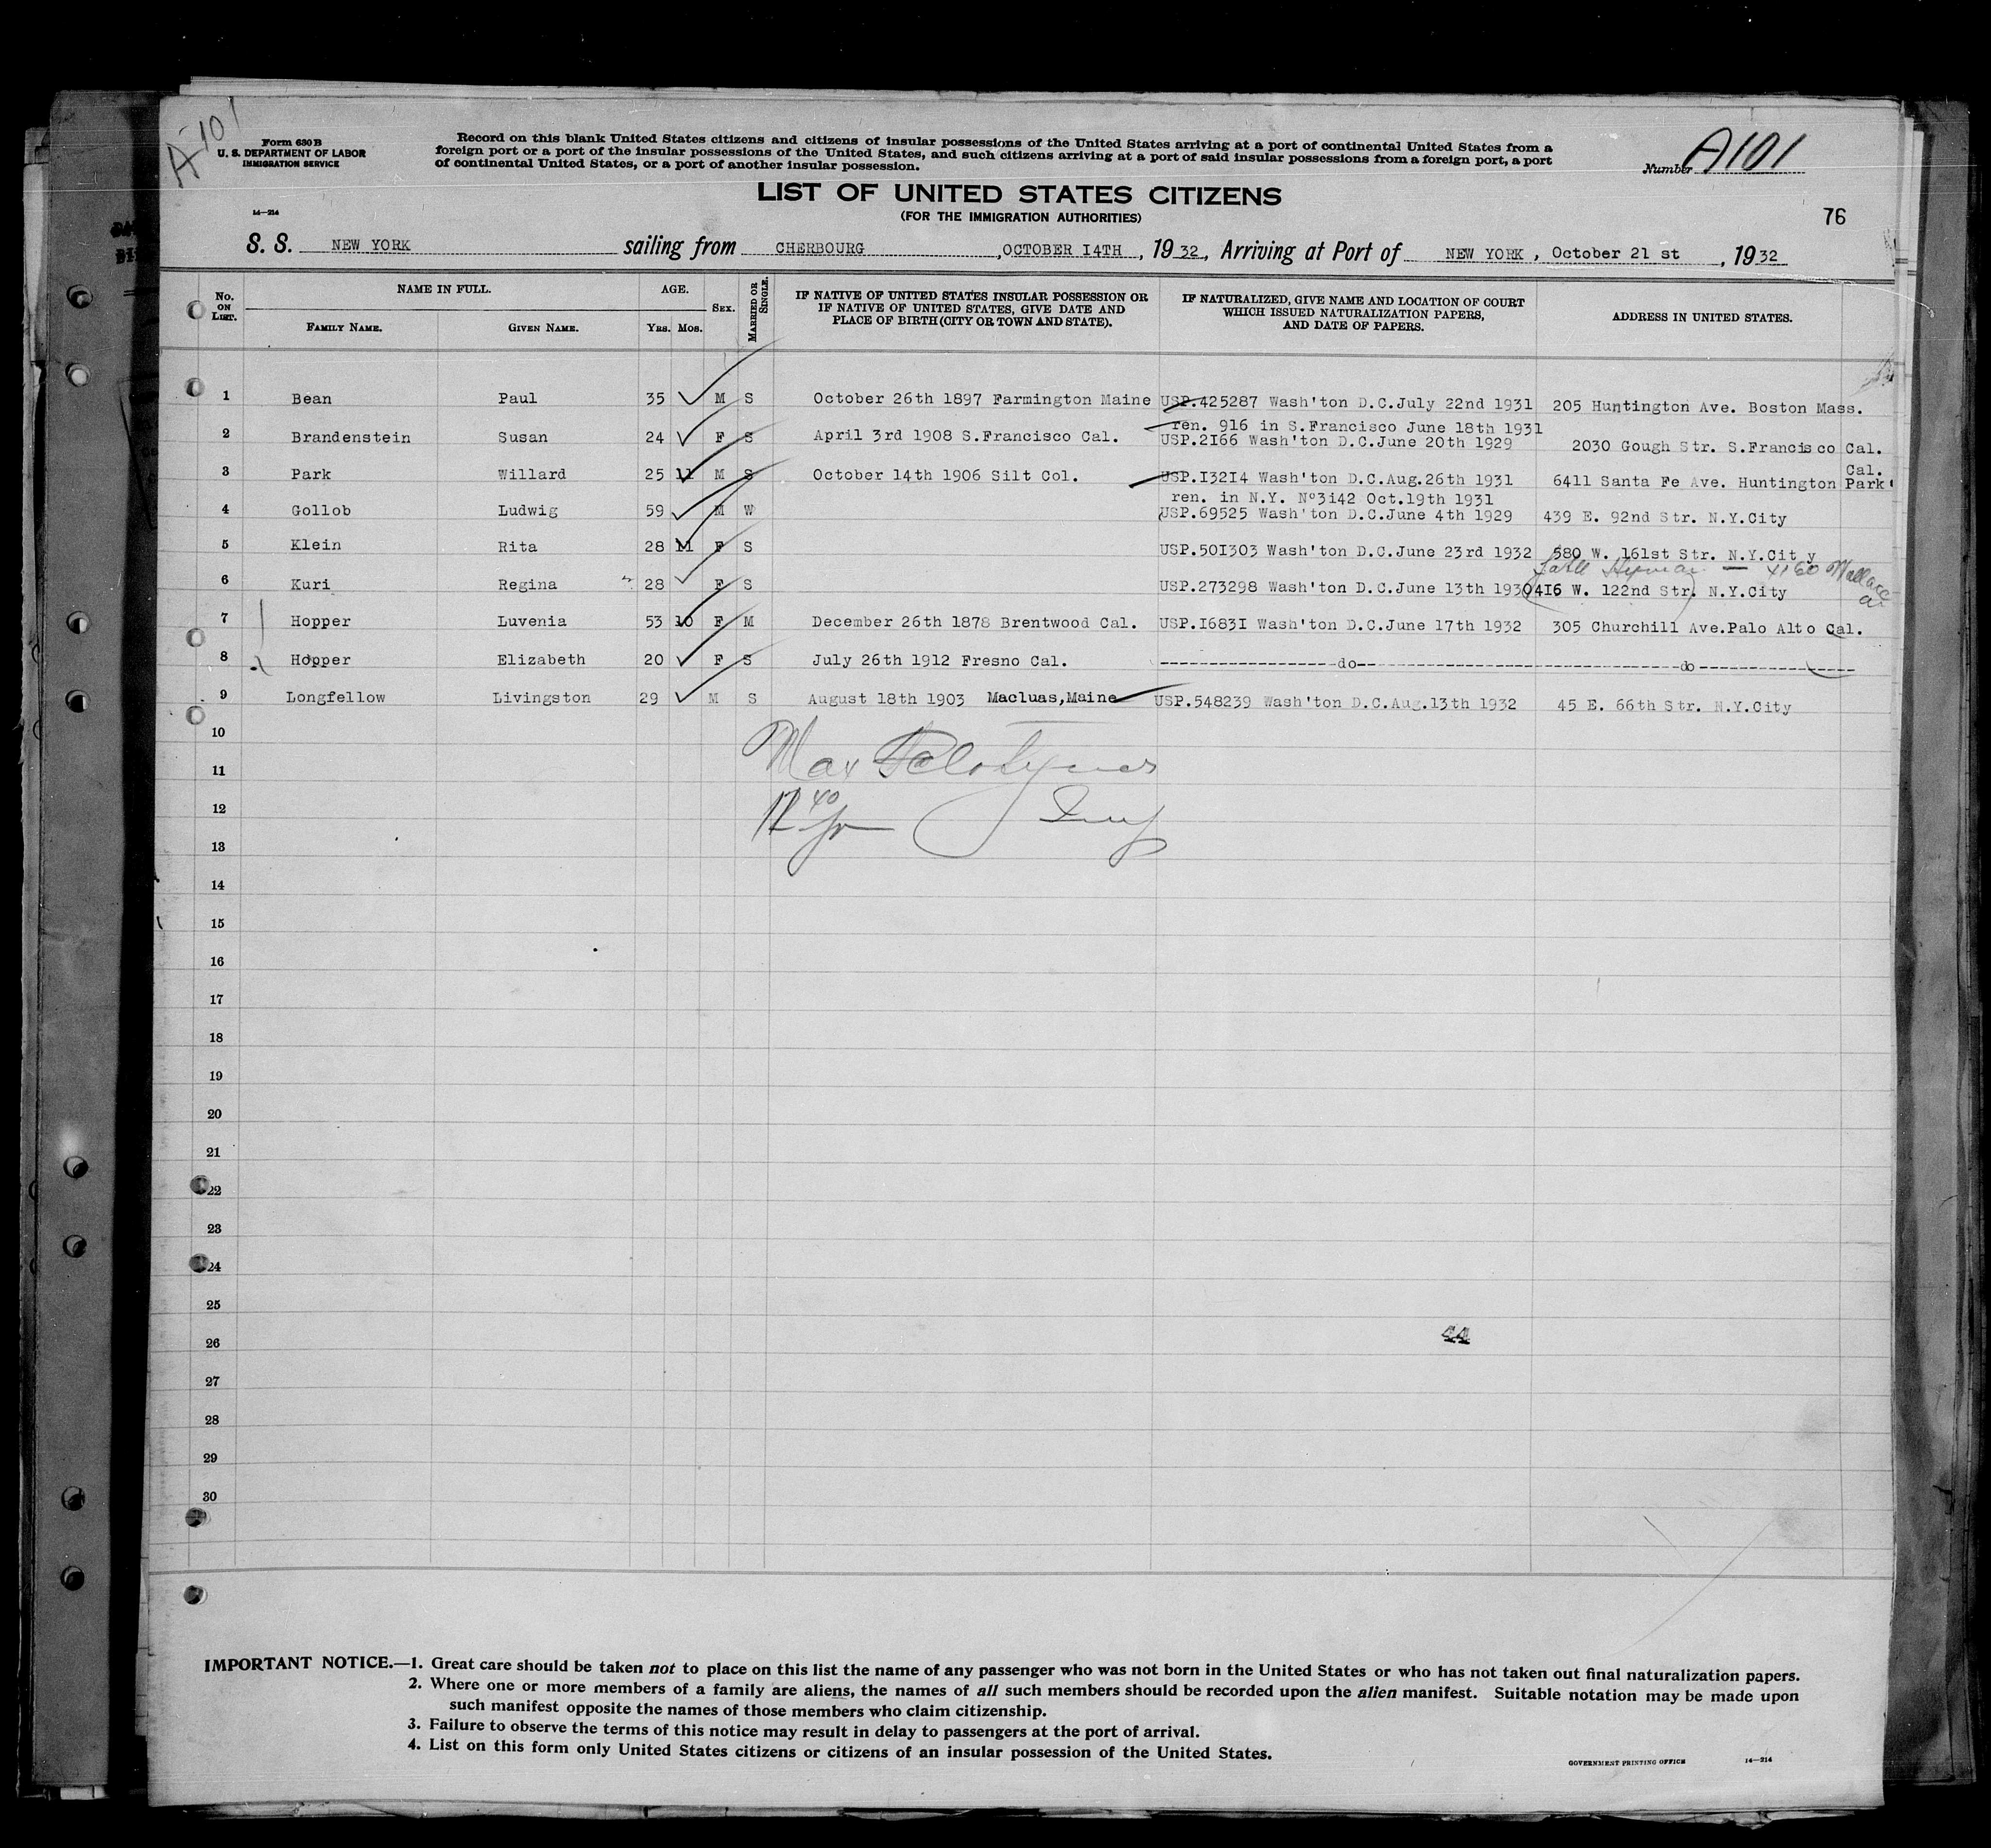 A-101
Form 630 B
U. S. DEPARTMENT OF LABOR
IMMIGRATION SERVICE
14—214
Record on this blank United States citizens and citizens of insular possessions of the United States arriving at a port of continental United States from a
foreign port or a port of the insular possessions of the United States, and such citizens arriving at a port of said insular possessions from a foreign port, a port
of continental United States, or a port of another insular possession.
Number A101
LIST OF UNITED STATES CITIZENS
(FOR THE IMMIGRATION AUTHORITIES)
76
S. S. NEW YORK sailing from CHERBOURG , OCTOBER I4TH , 1932, Arriving at Port of NEW YORK , October 21 st , 1932
No. ON LIST. NAME IN FULL. FAMILY NAME. GIVEN NAME. AGE. YRS. MOS. SEX. MARRIED OR SINGLE. IF NATIVE OF UNITED STATES INSULAR POSSESSION OR IF NATIVE OF UNITED STATES, GIVE DATE AND PLACE OF BIRTH (CITY OR TOWN AND STATE). IF NATURALIZED, GIVE NAME AND LOCATION OF COURT WHICH ISSUED NATURALIZATION PAPERS, AND DATE OF PAPERS. ADDRESS IN UNITED STATES.
1 Bean Paul 35 M S October 26th 1897 Farmington Maine USP.425287 Wash'ton D.C.July 22nd 1931 205 Huntington Ave. Boston Mass.
ren. 916 in S.Francisco June 18th 1931
2 Brandenstein Susan 24 F S April 3rd 1908 S.Francisco Cal. USP.2I66 Wash'ton D.C.June 20th 1929 2030 Gough Str. S.Francisco Cal.
3 Park Willard 25 11 M S October 14th 1906 Silt Col. USP.I32I4 Wash'ton D.C.Aug.26th 1931 6411 Santa Fe Ave. Huntington Park Cal.
ren. in N.Y. Nº3i42 Oct.19th 1931
4 Gollob Ludwig 59 M W USP.69525 Wash'ton D.C.June 4th 1929 439 E. 92nd Str. N.Y.City
5 Klein Rita 28 11 F S USP.50I303 Wash'ton D.C.June 23rd 1932 580 W. 161st Str. N.Y.City
4160 Wallace
6 Kuri Regina 28 F S USP.273298 Wash'ton D.C.June 13th 1930 4I6 W. 122nd Str. N.Y.City
7 Hopper Luvenia 53 10 F M December 26th 1878 Brentwood Cal. USP.I683I Wash'ton D.C.June 17th 1932 305 Churchill Ave.Palo Alto Cal.
8 Hopper Elizabeth 20 F S July 26th 1912 Fresno Cal. do do
9 Longfellow Livingston 29 M S August 18th 1903 Macluas,Maine USP.548239 Wash'ton D.C.Aug.13th 1932 45 E. 66th Str. N.Y.City
10
Max
11
12
13
14
15
16
17
18
19
20
21
22
23
24
25
26
44
27
28
29
30
IMPORTANT NOTICE.—1. Great care should be taken not to place on this list the name of any passenger who was not born in the United States or who has not taken out final naturalization papers.
2. Where one or more members of a family are aliens, the names of all such members should be recorded upon the alien manifest. Suitable notation may be made upon
such manifest opposite the names of those members who claim citizenship.
3. Failure to observe the terms of this notice may result in delay to passengers at the port of arrival.
4. List on this form only United States citizens or citizens of an insular possession of the United States.
GOVERNMENT PRINTING OFFICE 14—214